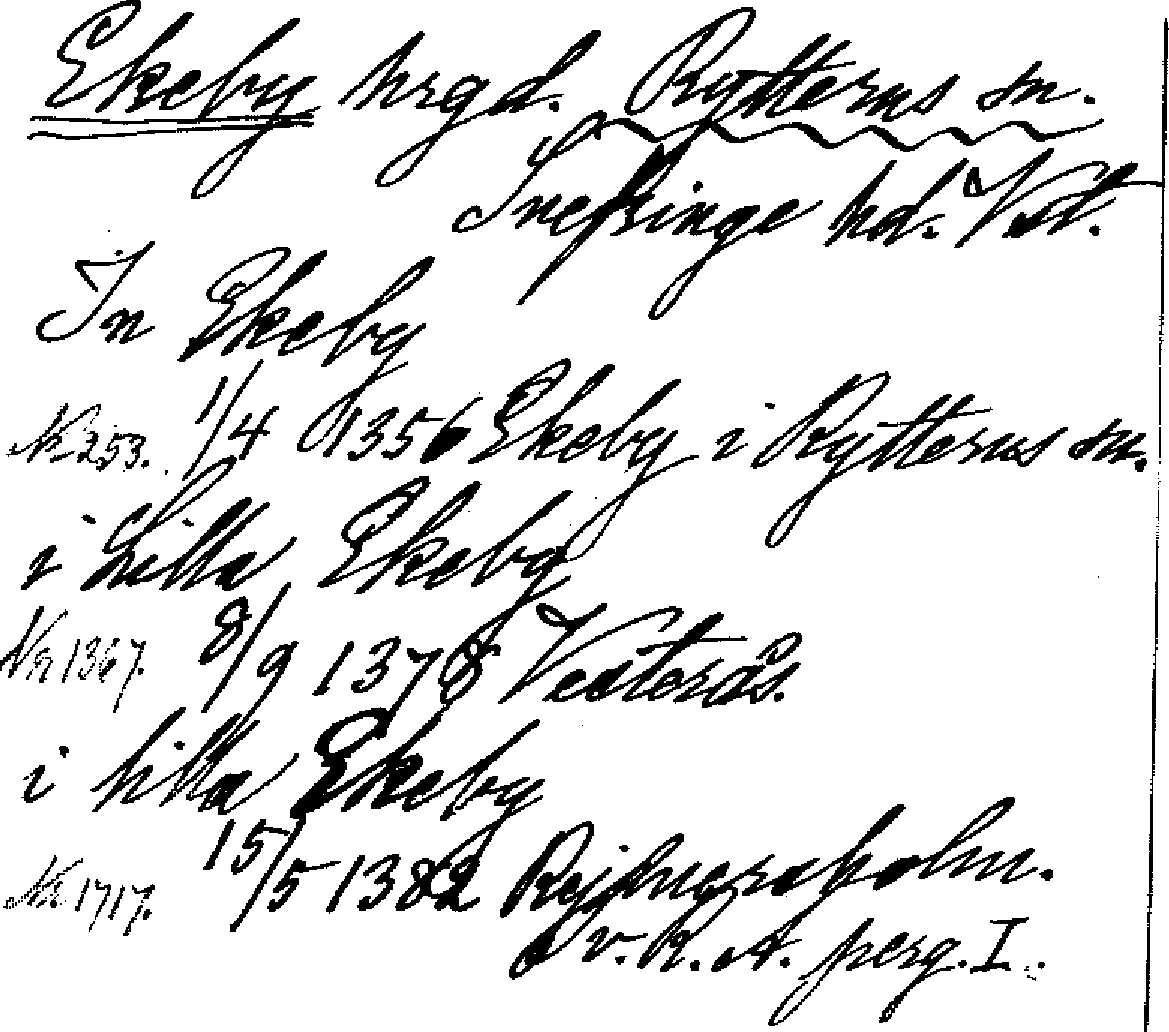 Ekeby hrgd. Rytterns sn.
Snefringe hd. Vstl.
In Ekeby
Nr 253. 1/4 1356 Ekeby i Rytterns sn.
i Lilla Ekeby
Nr 1367. 8/9 1378 Vesterås.
i lilla Ekeby
Nr 1717. 15/5 1382
Sv. R. A. perg. I.